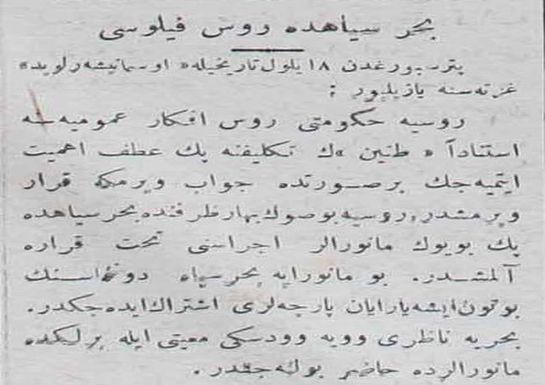 بحر سیاهده روس فیلوسی
پترسبورغدن ١٨ ایلول تاریخیله « اوسمانیشه رلوید »
غزته سنه یازیلیور :
روسیه حکومتی روس افکار عمومیه سنه
استناداً « طنین » ك تکلیفنه پك عطف اهمیت
ایتمیه جك برصورتده جواب ویرمکه قرار
ویرمشدر. روسیه بوصوك بهار ظرفنده بحر سیاهده
پك بویوك مانورالر اجراسنی تحت قراره
آلمشدر. بو مانورایه بحر سیاه دونماسنك
بوتون ایشه یارایان پارچه لری اشتراك ایده جکدر.
بحریه ناظری وویه وودسکی معیتی ایله برلکده
مانورالرده حاضر بولنه جقدر.